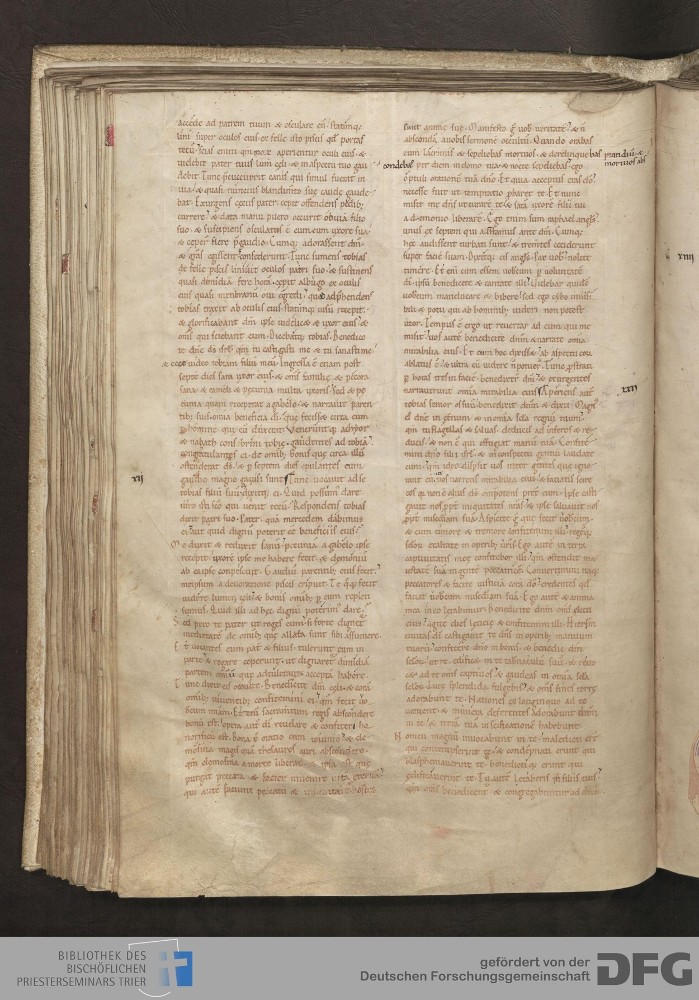 accede ad patrem tuum & osculare eū. statimq;
lini super oculos eius ex felle isto piscis qđ portas
tecū. Scias enim qm mox aperientur oculi eius. &
uidebit pater tuus lum cęli. & in aspectu tuo gau
debit. Tunc p̄cucurrit canis qui simul fuerat in
uia. & quasi nuncius
bat. Et surgens cęcus pater. cępit offendens pedib;
currere. & data manu puero occurrit obuiā filio
suo. & suscipiens osculatus ē eum cum uxore sua.
& ceper flere p̄ gaudio. Cumq; adorassent dm̄.
& grās egissent. consederunt. Tunc sumens tobias
de felle piscis. liniuit oculos patri suo. & sustinens
quasi dimidiā fere horā. cępit albugo ex oculis
eius quasi membranū oui egredi. quā adp̄hendens
tobias traxit ab oculis eius. statimq; uisū recepit.
& glorificabant dm̄. ipse uidelic& & uxor eius. &
omīs qui sciebant eum. Dicebatq; tobias. Benedico
te dnē ds isrł. qm̄ tu castigasti me & tu sanasti me.
& ecce uideo tobiam filiū meū. Ingressa ē etiam post
septe dies sara uxor eius. & omīs familię. & pecora
sana. & cameli. & pecunia multa uxoris. Sed & pe
cunia quam receperat a gabelo. & narrauit paren
tib; suis omīa beneficia dī. quę fecisset circa eum
p̄ hominē qui eū duxerat. Veneruntq; achyor
& nabath consobrini tobię. gaudentes ad tobiā.
congratulantes ei. de omib; bonis que circa illū
ostenderat ds. & p̄ septem dies epulantes cum
gaudio magno gauisi sunt. Tunc uocauit ad se
tobias filiū suū. dixitq; ei. Quid possum dare
uiro isti sc̄o qui uenit tecū. Respondens tobias
dixit patri suo. Pater. quā mercedem dabimus
ei. aut quid dignū poterit ēē beneficiis eius.
Me duxit & reduxit sanū. pecuniā a gabelo ipse
recepit. uxorē ipse me habere fecit. & demoniū
ab ea ipse compescuit. Gaudiū parentib; eius fecit.
meipsum a deuoratione piscis eripuit. Te q̄q; fecit
uidere lumen cęli. & bonis omib; p̄ eum repleti
sumus. Quid illi ad hęc dignū poterim dare.
Sed peto te pater ut roges eum. si forte dignet
medietatē de omib; que allata sunt sibi assumere.
Et uocantes eum pat & filius. tulerunt eum in
parte. & rogare ceperunt. ut dignaret dimidiā
partem omiū que adtulerant. accepta habere.
Tunc dixit eis occulte. Benedicite dm̄ cęli. & corā
omib; uiuentib; confitemini ei. qm̄ fecit uo
bcum mīam. Etenī sacramtum regis abscondere
bonū est. opera aut dī reuelare & confiteri ho
norificū est. Bona ē oratio cum ieiunio. & ele
mosina magis quā thesauros auri abscondere.
qm̄ elemosina a morte liberat. & ipsa est que
purgat peccata. & facit inuenire uitā eternā.
qui aute faciunt peccatū & iniquitatē. hostes
xii
sunt animę suę. Manifesto g̊ uob ueritatē. & ñ
abscondā a uobis sermonē occultū. Quando orabas
cum lacrimis & sepeliebas mortuos. & derelinquebas prandiū. &
mortuos abs
condebas per diem in domo tua. & nocte sepeliebas. ego
obtuli orationē tuā dn̄o. Et quia acceptus eras dō.
necesse fuit ut temptatio p̄baret te. Et nunc
misit me dn̄s ut curarē te. & sarā uxorē filii tui
a demonio liberarē. Ego enim sum raphael angls.
unus ex septem qui astamus ante dm̄. Cumq;
hęc audissent turbati sunt. & trementes ceciderunt
super facie suam. Dixitq; eis angls. Pax uob. nolite
timere. Et eni cum essem uobcum. p̄ uoluntatē
dī. ipsū benedicite & cantate illi. Videbar quidē
uobcum manducare & bibere. sed ego cybo inuisi
bili. & potu qui ab hominib; uideri non potest
utor. Tempus ē ergo ut reuertar ad eum qui me
misit. uos aute benedicite dm̄. & narrate omia
mirabilia eius. Et cum hęc dixisset. ab aspectu eoꝝ
ablatus ē. & ultra eū uidere ñ potuer. Tunc p̄strati
p̄ horas tres in facie. benedixer dm̄. & exurgentes
narrauerunt omia mirabilia eius. Aperiens aute
tobias senior os suū. benedixit dm̄. & dixit. Magn'
es dnē in ęternum. & in omīa sęcła regnū tuum.
qm̄ tu flagellas & saluas. deducis ad inferos & re
ducis. & non ē qui effugiat manū tuā. Confite
mini dn̄o filii isrł. & in conspectu gentiū laudate
eum. qm̄ ideo dispsit uos inter gentes que igno
rant eū. ut uos narretis mirabilia eius. & faciatis scire
eos. qa non ē alius ds omīpotens pręter eum. Ipse casti
gauit nos ppt iniquitates nr̄as. & ipse saluauit nos
ppt mīsediam suā. Aspicite g̊ quę fecit uobcum.
& cum timore & tremore confitemini illi. regēq;
sclox exaltate in operib; ur̄is. Ego aute in terra
captiuitatis meę confitebor illi. qm̄ ostendit ma
iestatē suā in gente peccatricē. Conuertimini itaq;
peccatores & facite iusticiā corā dō. credentes qd
faciat uobcum mīsediam suā. Ego aute & anima
mea in eo letabimur. benedicite dnm̄ oms electi
eius. agite dies letitię. & confitemini illi. Hierlm
ciuitas dī. castigauit te dns in operib; manuum
tuaꝝ. confitere dn̄o in bonis. & benedic dm̄
sclox. ut reędificet in te tabnaculū suū. & reuo
cet ad te omīs captiuos. & gaudeas in omīa scła
sclox. Luce splendida fulgebis. & oms fines terre
adorabunt te. Nationes ex longinquo ad te
uenient. & munera deferentes adorabunt dnm̄
in te. & terrā tuā in scificationē habebunt.
Nomen magnū inuocabunt in te. maledicti erūt
qui contempserint te. & condempnati erunt qui
blasphemauerint te. benedictiq; erunt qui
ędificauerint te. Tu aute letaberis in filiis tuis.
qm̄ omīs benedicentur & congregabuntur ad dnm̄.
xiii
xiii
BIBLIOTHEK DES
BISCHÖFLICHEN
PRIESTERSEMINARS TRIER
gefördert von der
Deutschen Forschungsgemeinschaft
DFG